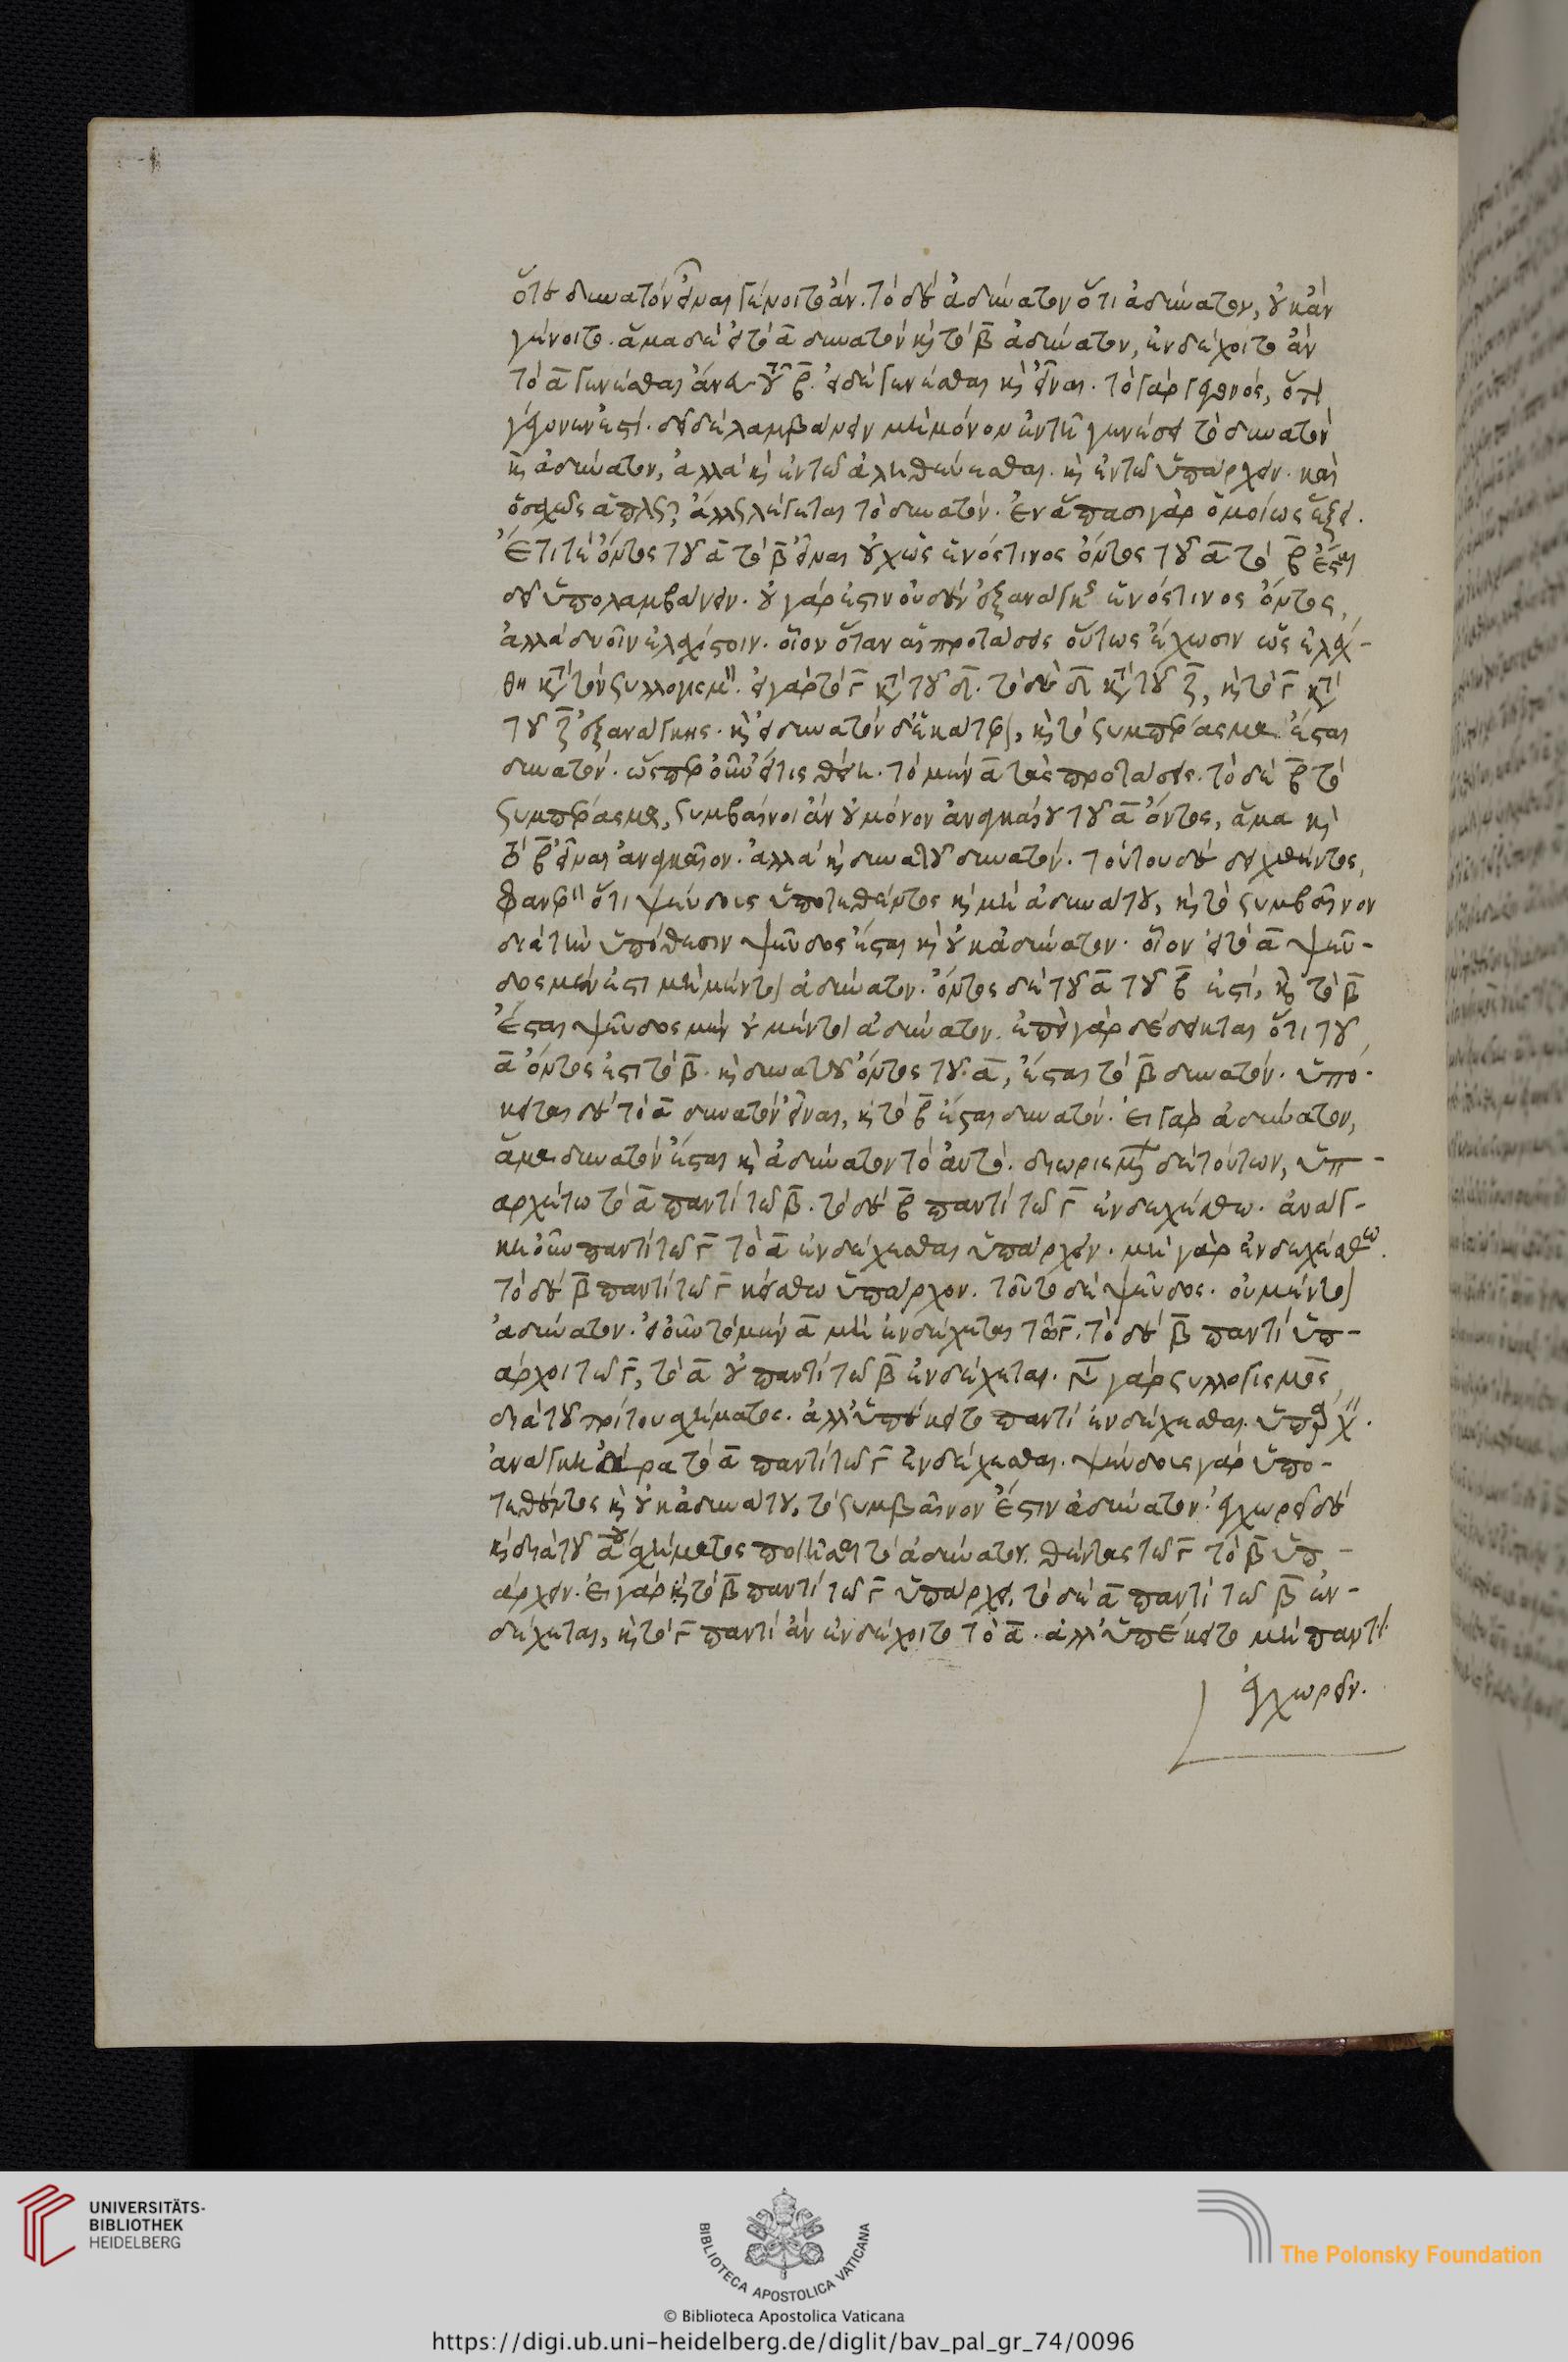 ὅτε δυνατὸν εἶναι γένοιτο ἄν. τὸ δὲ ἀδύνατον ὅτι ἀδύνατον, οὐκ ἂν
γένοιτο. ἅμα δὲ εἰ τὸ α̅ δυνατὸν κ̀ τὸ β̅ ἀδύνατον, ἐνδέχοιτο ἂν
τὸ α̅ γενέσθαι ἄνευ τοῦ β̅. εἰ δὲ γενέσθαι κ̀ εἶναι. τὸ γὰρ γεγονὸς, ὅτε
γέγονεν ἐστί. δεῖ δὲ λαμβάνειν μὴ μόνον ἐν τῇ γενέσει τὸ δυνατὸν
κ̀ ἀδύνατον, ἀλλὰ κ̀ ἐν τῷ ἀληθεύεσθαι. κ̀ ἐν τῷ ὑπάρχειν. καὶ
ὁσαχῶς ἁπλῶς ἄλλως λέγεται τὸ δυνατόν. ἐν ἅπασι γὰρ ὁμοίως ἕξει.
ἔτι τὲ ὄντος τοῦ α̅ τὸ β̅ εἶναι οὐχ ὡς ἑνός τινος ὄντος τοῦ α̅ τὸ β̅ ἔσται
δεῖ ὑπολαμβάνειν. οὐ γάρ ἐστιν οὐδὲν ἐξανάγκης ἑνός τινος ὄντος,
ἀλλὰ δυοῖν ἐλαχίστοιν. οἷον ὅταν αἱ προτάσεις οὕτως ἔχωσιν ὡς ἐλέχ-
θη κατὰ τὸν συλλογισμόν. εἰ γὰρ τὸ γ̅ κατὰ τοῦ δ̅. τὸ δὲ δ̅ κατὰ τοῦ ζ̅, κ̀ τὸ γ̅ κατὰ
τοῦ ζ̅ ἐξανάγκης. κ̀ εἰ δυνατὸν δ' ἑκάτερον, κ̀ τὸ συμπέρασμα ἔσται
δυνατόν. ὥσπερ οὖν εἴ τις θείη. τὸ μὲν α̅ τὰς προτάσεις. τὸ δὲ β̅ τὸ
συμπέρασμα, συμβαίνοι ἂν οὐ μόνον ἀναγκαίου τοῦ α̅ ὄντος, ἅμα κ̀
τὸ β̅ εἶναι ἀναγκαῖον. ἀλλὰ κ̀ δυνατοῦ δυνατόν. τούτου δὲ δειχθέντος,
φανερὸν ὅτι ψεύδους ὑποτεθέντος κ̀ μὴ ἀδυνάτου, κ̀ τὸ συμβαῖνον
διὰ τὴν ὑπόθεσιν ψεῦδος ἔσται κ̀ οὐκ ἀδύνατον. οἷον εἰ τὸ α̅ ψεῦ-
δος μέν ἐστι μὴ μέντοι ἀδύνατον. ὄντος δὲ τοῦ α̅ τοῦ β̅ ἐστί, κ̀ τὸ β̅
ἔσται ψεῦδος μὲν οὐ μέντοι ἀδύνατον. ἐπεὶ γὰρ δέδεικται ὅτι τοῦ
α̅ ὄντος ἐστὶ τὸ β̅. κ̀ δυνατοῦ ὄντος τοῦ α̅, ἔσται τὸ β̅ δυνατόν. ὑπό-
κειται δὲ τὸ α̅ δυνατὸν εἶναι, κ̀ τὸ β̅ ἔσται δυνατόν. εἰ γὰρ ἀδύνατον,
ἅμα δυνατὸν ἔσται κ̀ ἀδύνατον τὸ αὐτό. διωρισμένων δὲ τούτων, ὑπ-
αρχέτω τὸ α̅ παντὶ τῷ β̅. τὸ δὲ β̅ παντὶ τῷ γ̅ ἐνδεχέσθω. ἀνάγ-
κη οὖν παντὶ τῷ γ̅ τὸ α̅ ἐνδέχεσθαι ὑπάρχειν. μὴ γὰρ ἐνδεχέσθω.
τὸ δὲ β̅ παντὶ τῷ γ̅ κείσθω ὑπάρχον. τοῦτο δὲ ψεῦδος. οὐ μέντοι
ἀδύνατον. εἰ οὖν τὸ μὲν α̅ μὴ ἐνδέχεται τῷ γ̅. τὸ δὲ β̅ παντὶ ὑπ-
άρχοι τῷ γ̅, τὸ α̅ οὐ παντὶ τῷ β̅ ἐνδέχεται. γίνεται γὰρ συλλογισμὸς
διὰ τοῦ τρίτου σχήματος. ἀλλ' ὑπέκειτο παντὶ ἐνδέχεσθαι ὑπάρχειν.
ἀνάγκη ἄρα τὸ α̅ παντὶ τῷ γ̅ ἐνδέχεσθαι. ψεύδους γὰρ ὑπο-
τεθέντος κ̀ οὐκ ἀδυνάτου, τὸ συμβαῖνον ἐστιν ἀδύνατον. ἐγχωρεῖ δὲ
κ̀ διὰ τοῦ α̅ου σχήματος ποιῆσαι τὸ ἀδύνατον. θέντας τῷ γ̅ τὸ β̅ ὑπ-
άρχειν. εἰ γὰρ κ̀ τὸ β̅ παντὶ τῷ γ̅ ὑπάρχει. τὸ δὲ α̅ παντὶ τῷ β̅ ἐν-
δέχεται, κ̀ τὸ γ̅ παντὶ ἂν ἐνδέχοιτο τὸ α̅. ἀλλ' ὑπέκειτο μὴ παντὶ
ἐγχωρεῖν.
UNIVERSITÄTS-
BIBLIOTHEK
HEIDELBERG
BIBLIOTECA APOSTOLICA VATICANA
The Polonsky Foundation
© Biblioteca Apostolica Vaticana
https://digi.ub.uni-heidelberg.de/diglit/bav_pal_gr_74/0096